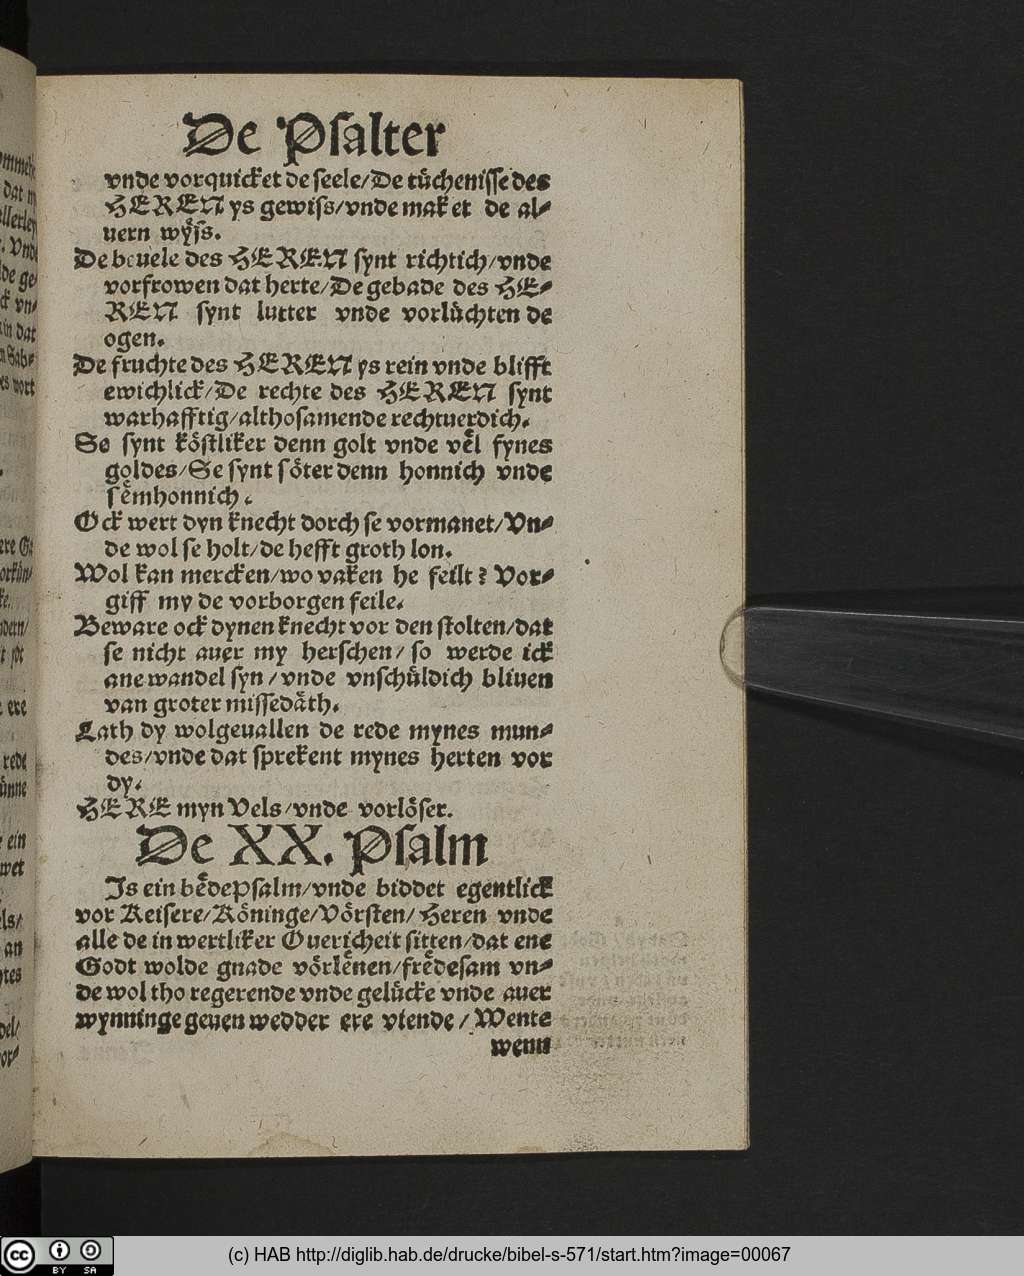 De Psalter
vnde vorquicket de seele/De tüchenisse des
HEREN ys gewiss/vnde maket de al-
uern wÿss.
De beuele des HEREN synt richtich/vnde
vorfrowen dat herte/De gebade des HE-
REN synt lutter vnde vorlüchten de
ogen.
De fruchte des HEREN ys rein vnde blifft
ewichlick/De rechte des HEREN synt
warhafftig/althosamende rechtuerdich.
Se synt köstliker denn golt vnde vël fynes
goldes/Se synt söter denn honnich vnde
sëmhonnich.
Ock wert dyn knecht dorch se vormanet/Vn-
de wol se holt/de hefft groth lon.
Wol kan mercken/wo vaken he feilt? Vor-
giff my de vorborgen feile.
Beware ock dynen knecht vor den stolten/dat
se nicht auer my herschen/ so werde ick
ane wandel syn/vnde vnschüldich bliuen
van groter missedäth.
Lath dy wolgeuallen de rede mynes mun-
des/vnde dat sprekent mynes herten vor
dy.
HERE myn Vels/vnde vorlöser.
De XX. Psalm
Is ein bëdepsalm/vnde biddet egentlick
vor Keisere/Köninge/Vörsten/Heren vnde
alle de in wertliker Ouericheit sitten/dat ene
Godt wolde gnade vörlënen/frëdesam vn-
de wol tho regerende vnde gelücke vnde auer
wynninge geuen wedder ere viende/Wente
wenn
(c) HAB http://diglib.hab.de/drucke/bibel-s-571/start.htm?image=00067
cc BY SA